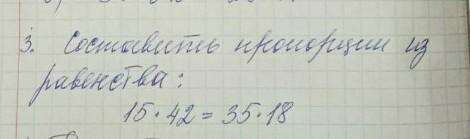 3. Составить пропорции из
равенства:
15·42=35·18